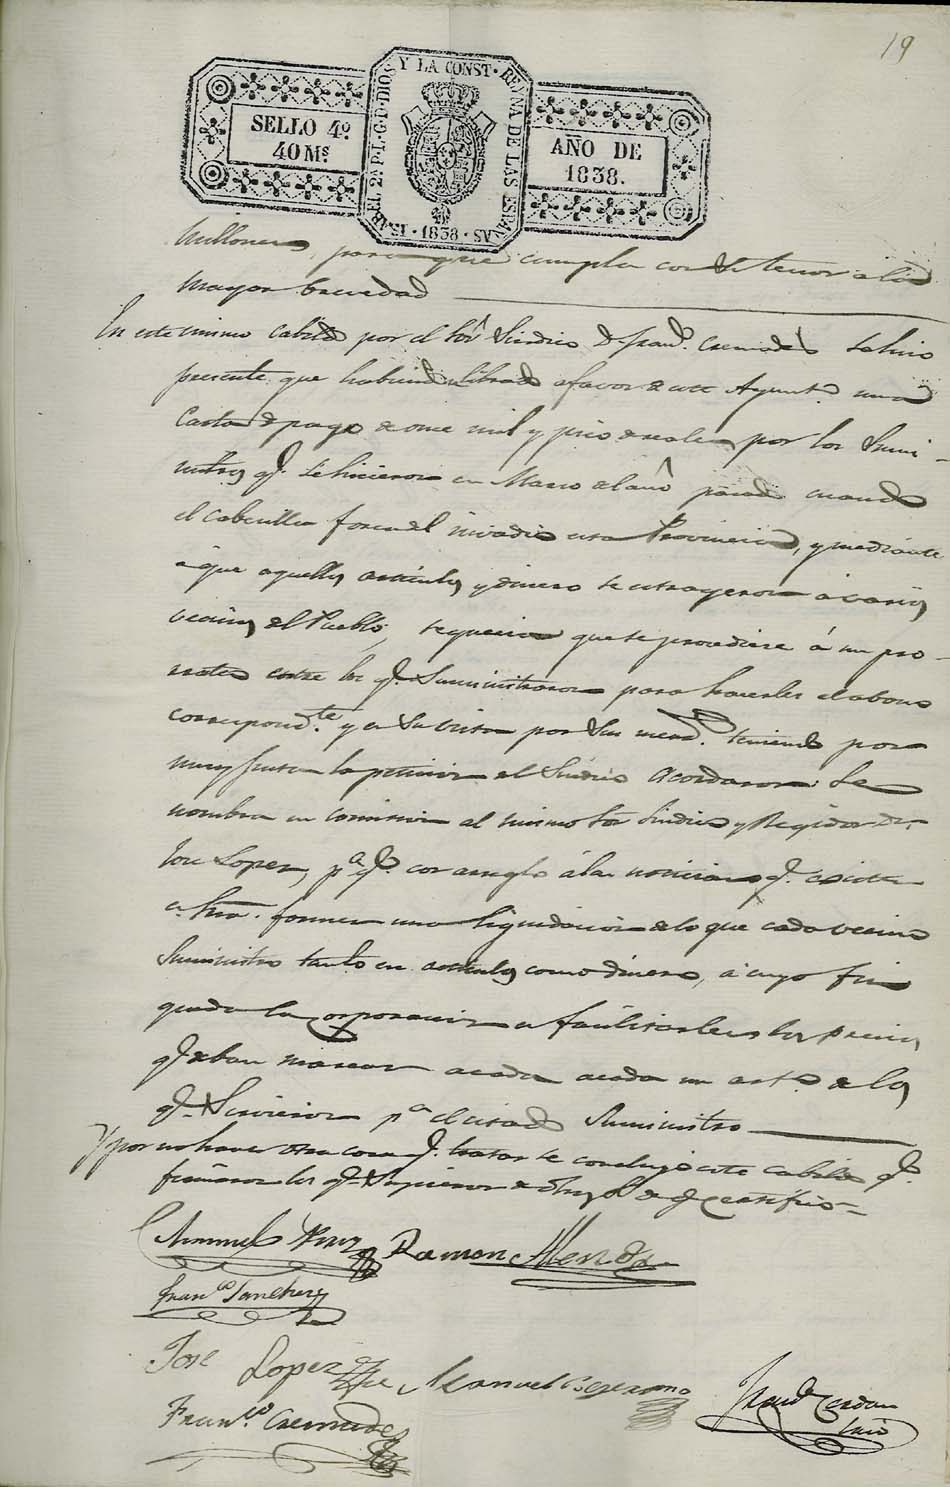 19
SELLO 4º
40 Ms
ISABEL 2ª P. L. G. D. DIOS Y LA CONST. REYNA DE LAS ESPAÑAS · 1838 ·
AÑO DE
1838.
Millones, para que cumpla con su tenor a la
mayor brevedad
En este mismo cabildo por el Sor Sindico Dn Franco Cremades se hizo
presente que habiendo librado a favor de este Ayunto una
Carta de pago de once mil y pico de reales por los Sumi-
nistros qe se hicieron en Marzo del año pasado cuando
el cabecilla Forcadell invadio esta Provincia, y mediante
á que aquellos articulos y dinero se estrageron á varios
vecinos del Pueblo, requeria que se procediese á un pro-
rateo entre los qe Suministraron para hacerles el abono
correspondte y en su vista por Sus mercs teniendo por
muy justa la peticion del Sindico Acordaron: Se
nombra en comision al mismo Sor Sindico y Regidor Dn
José Lopez, pa qe con arreglo á las noticias qe existen
en Sria formen una liquidacion de lo que cada vecino
Suministro tanto en articulos como dinero, á cuyo fin
queda la Corporacion en facilitarles los precios
qe deban marcar a cada a cada un arto de los
qe Sirvieron pa el citado Suministro
Y por no haver otra cosa qe tratar se concluyó este cabildo qe
firmaron los qe Supieron de de qe Certifico
Manuel Ramon
Franco Sanchez
José Lopez Manuel
Franco Cremades